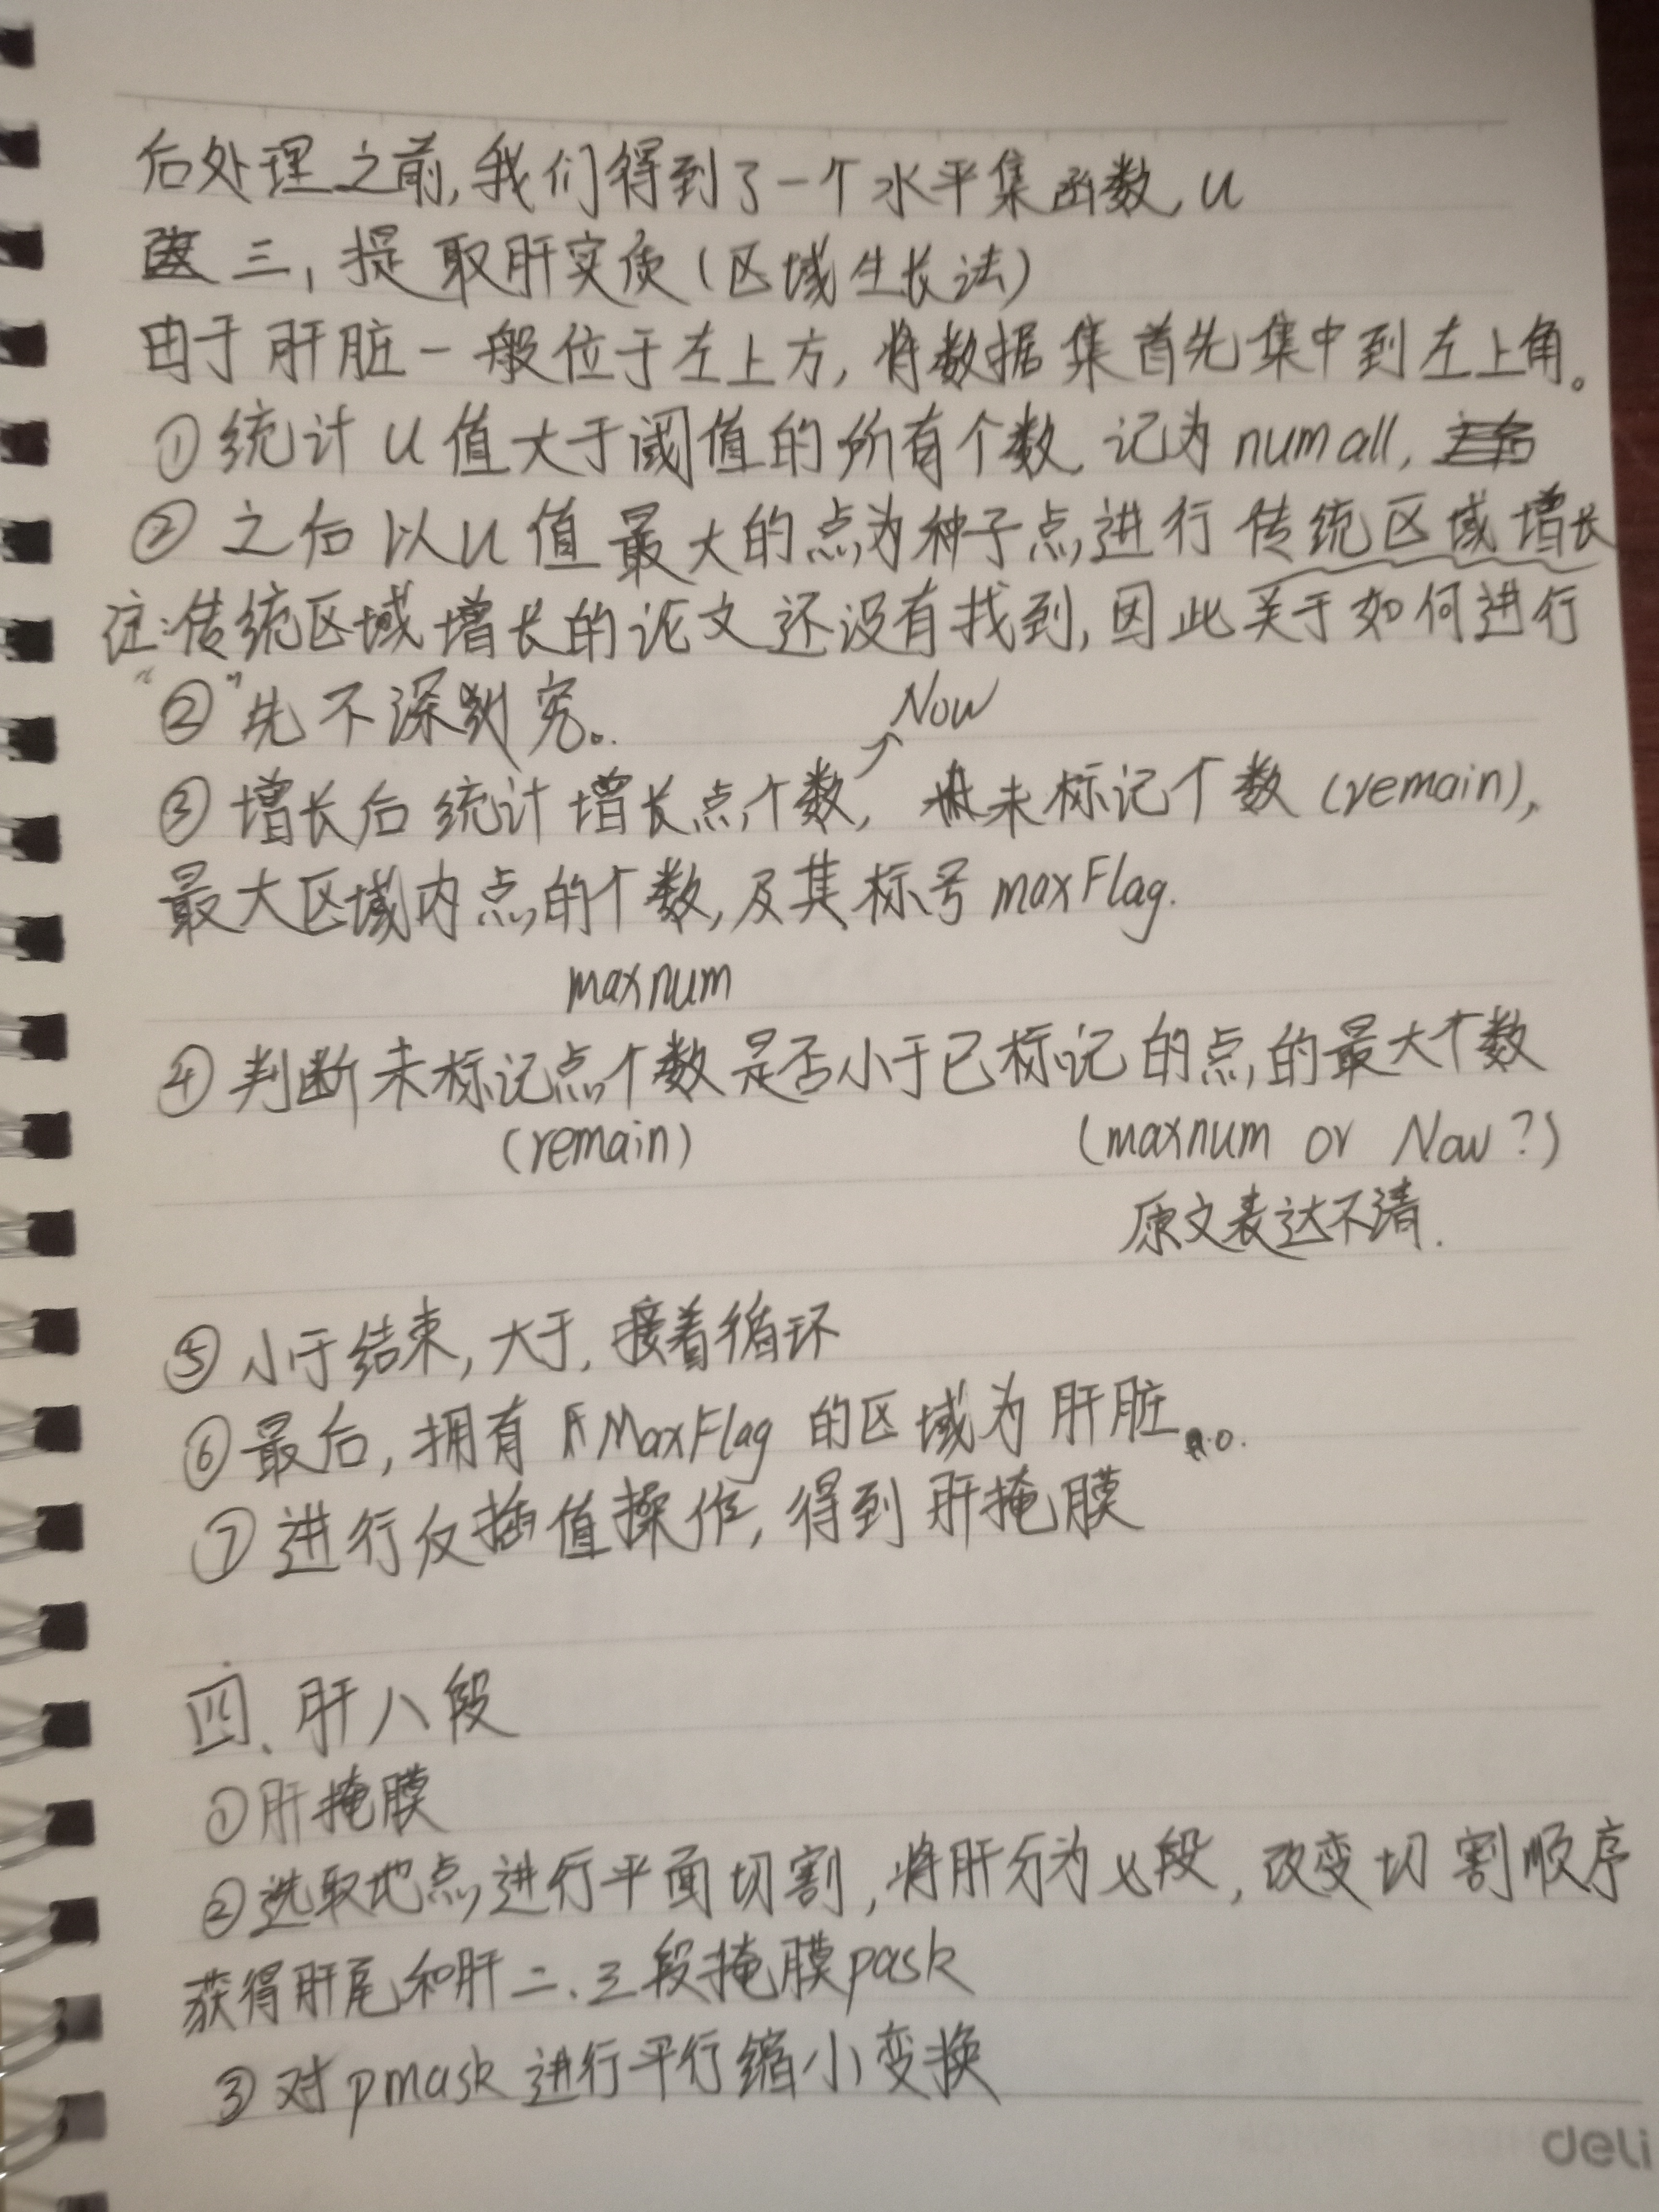 后处理之前,我们得到了一个水平集函数,u
三,提取肝实质(区域生长法)
由于肝脏一般位于左上方,将数据集首先集中到左上角。
①统计u值大于阈值的所有个数,记为numall,
②之后以u值最大的点为种子点,进行传统区域增长
注:传统区域增长的论文还没有找到,因此关于如何进行
"②"先不深究。
Now
③增长后统计增长点个数,未标记个数(remain),
最大区域内点的个数,及其标号maxFlag.
maxnum
④判断未标记点个数是否小于已标记的点的最大个数
(remain) (maxnum or Now?)
原文表达不清.
⑤小于结束,大于,接着循环
⑥最后,拥有MaxFlag的区域为肝脏。
⑦进行反插值操作,得到肝掩膜
四、肝八段
①肝掩膜
②选取地点,进行平面切割,将肝分为段,改变切割顺序
获得肝尾和肝二、三段掩膜pask
③对pmask进行平行缩小变换
deli